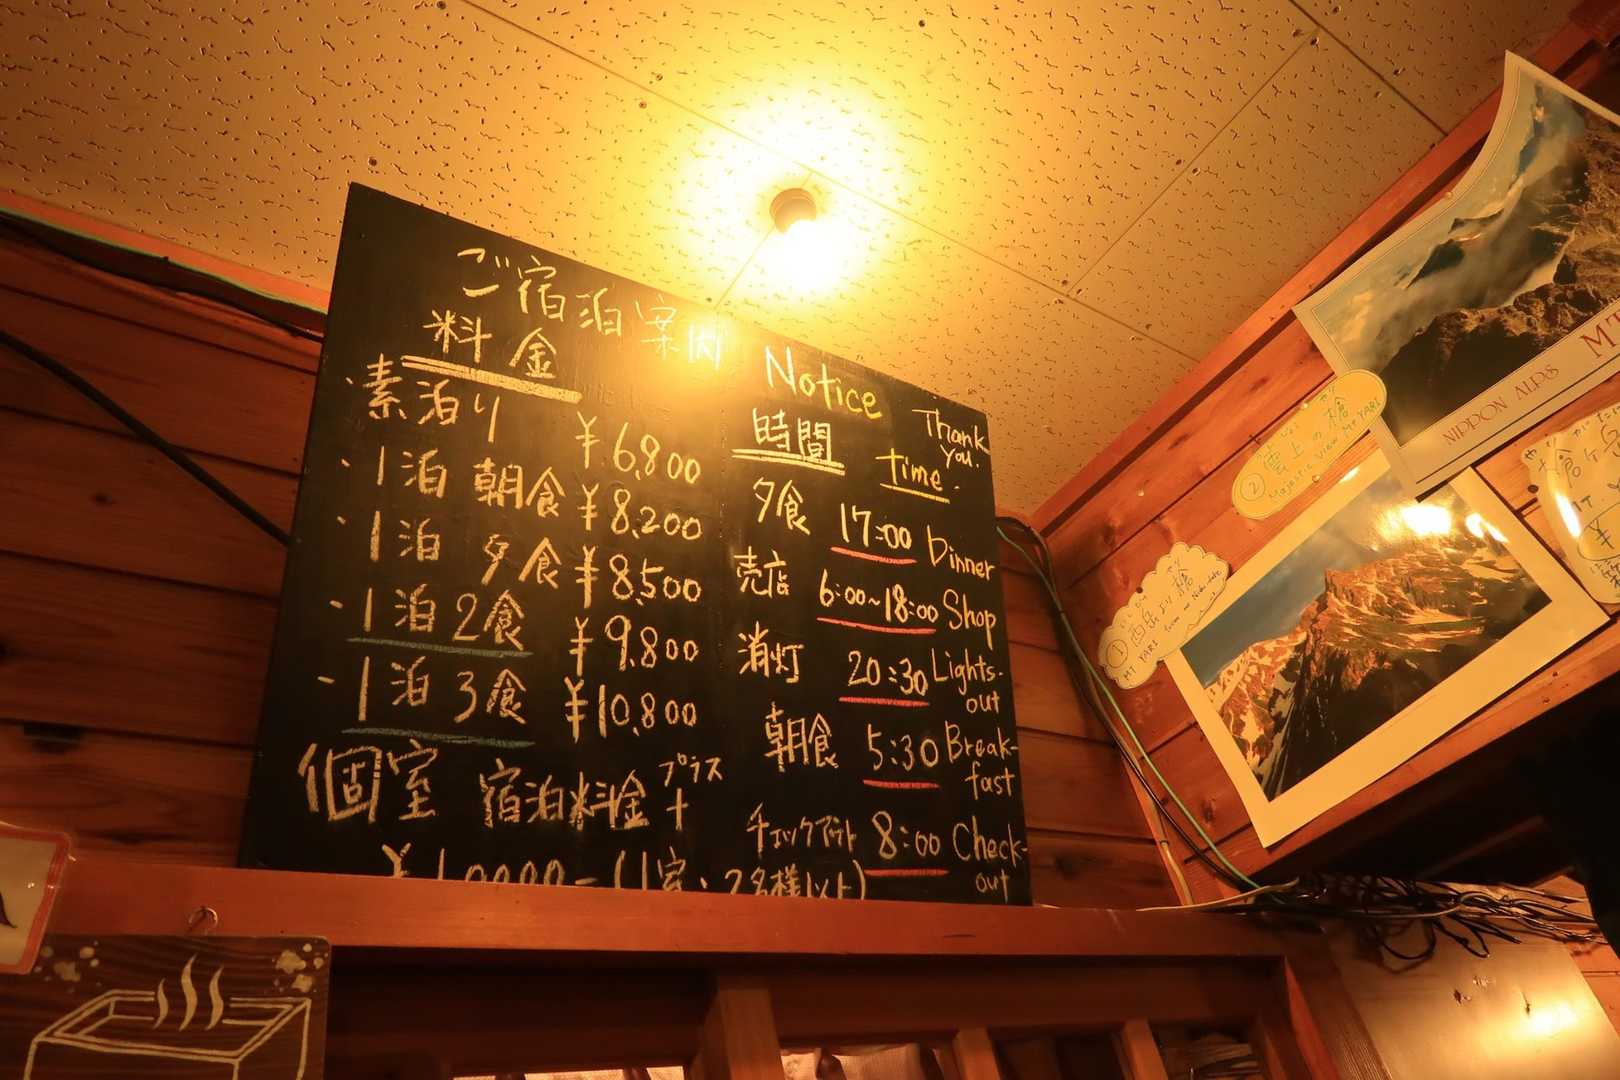 ご宿泊案内 Notice
料金
・素泊り ¥6,800
・1泊 朝食 ¥8,200
・1泊 夕食 ¥8,500
・1泊2食 ¥9,800
・1泊3食 ¥10,800
個室 宿泊料金 プラス
+
¥10000-(1室、2名様以上)
時間 time.
Thank
you.
夕食 17:00 Dinner
売店 6:00~18:00 Shop
消灯 20:30 Lights-
out
朝食 5:30 Break-
fast
チェックアウト 8:00 Check-
out
NIPPON ALPS
② 雲上の槍
Majestic View Mt YARI
① 西岳より槍
MT YARI from